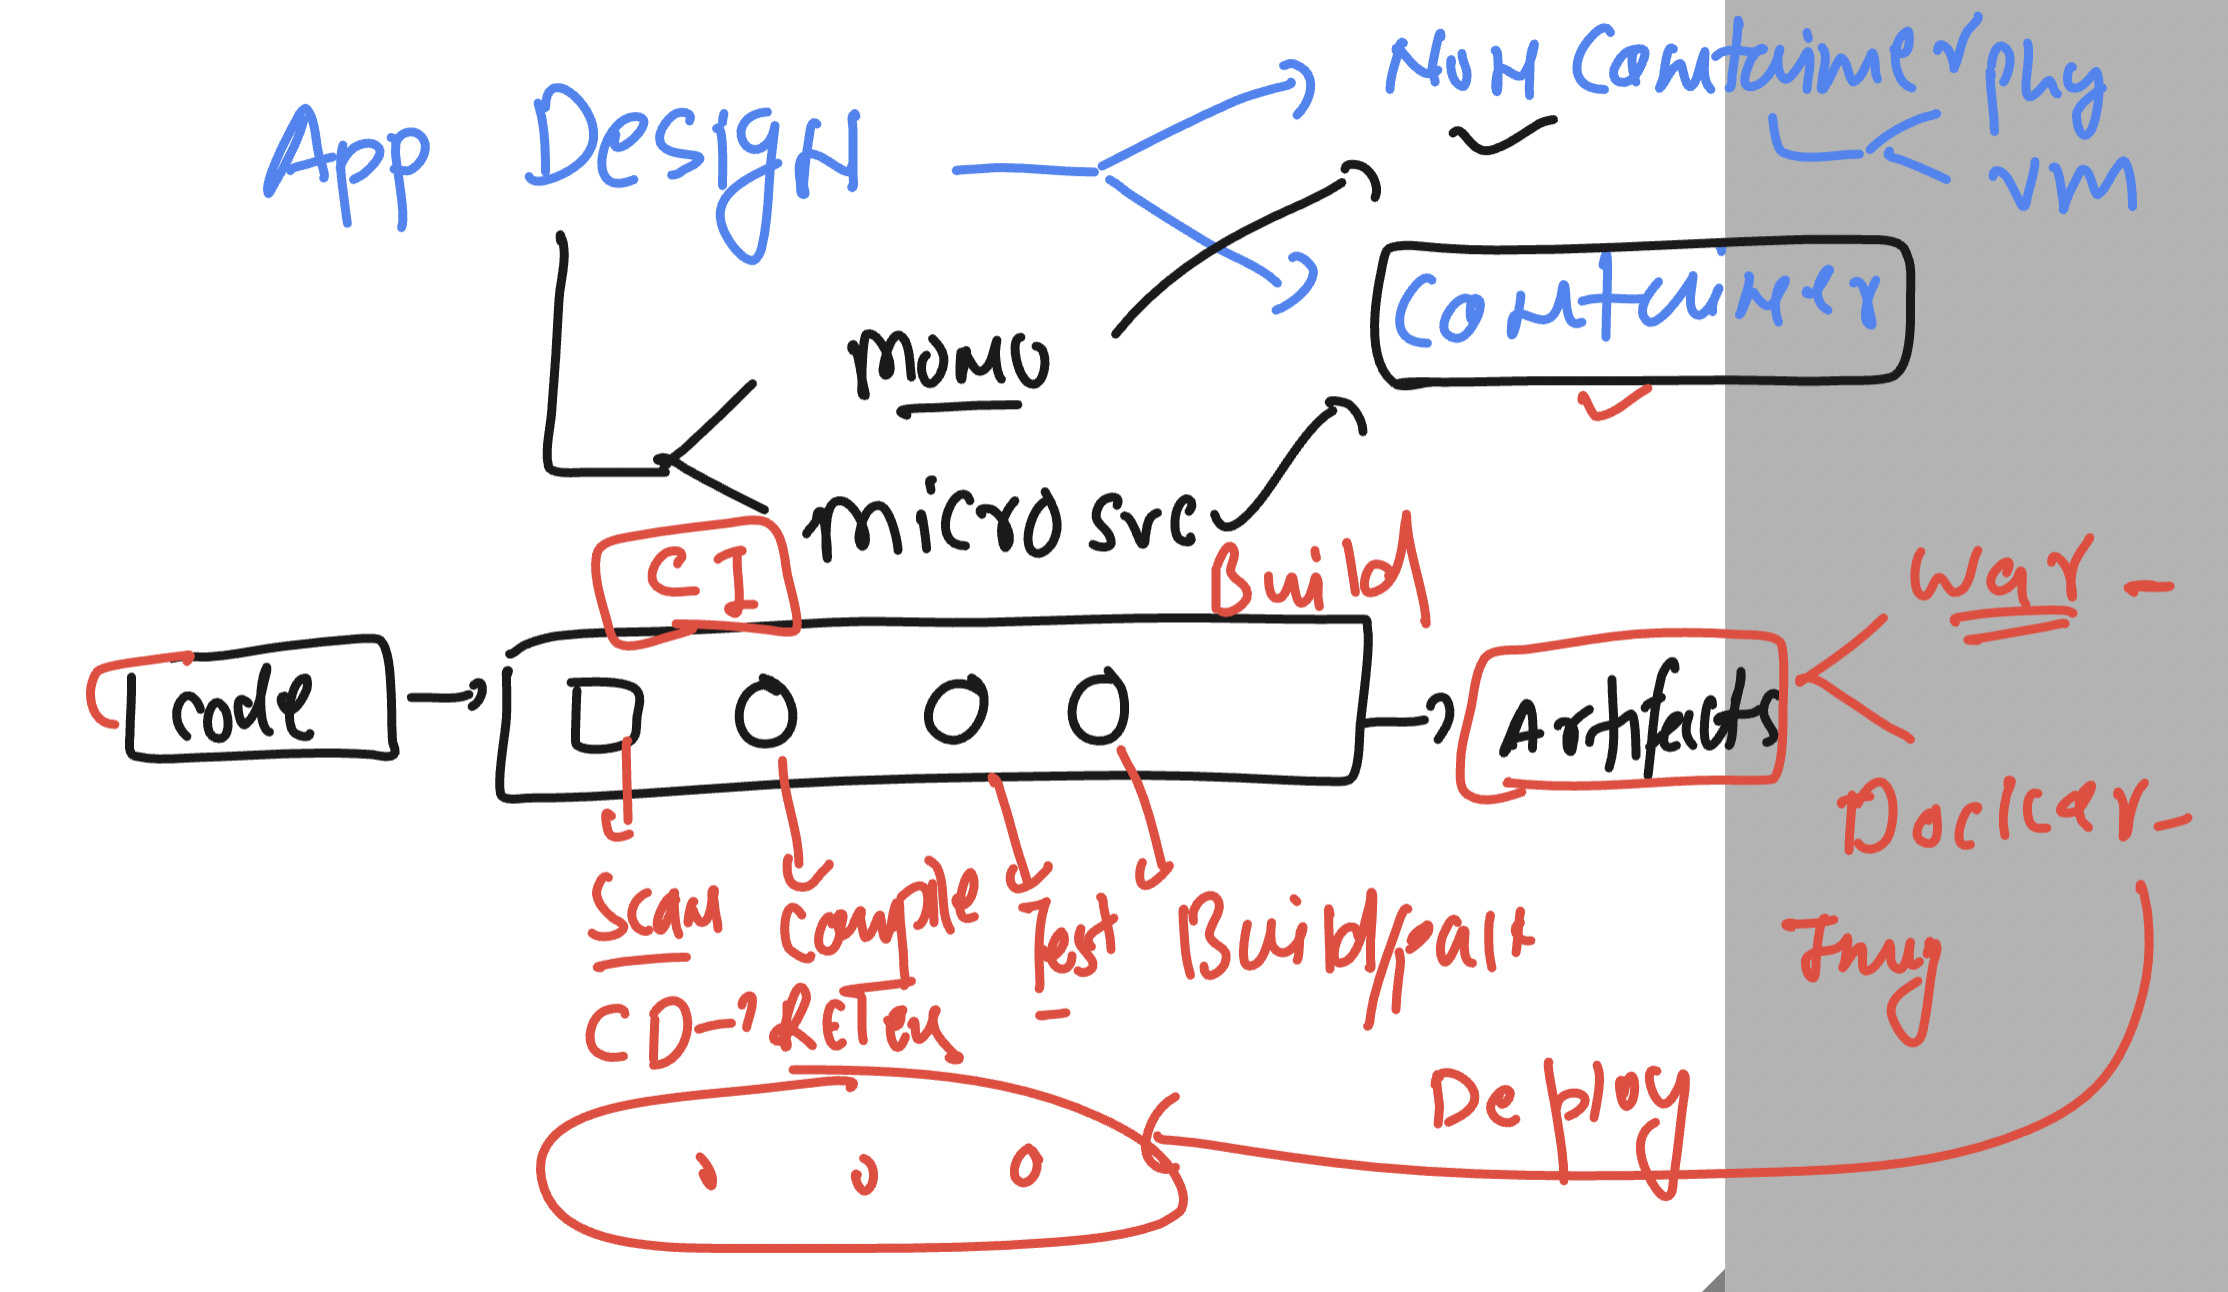 App Design
Non Container
phy
vm
Container
mono
micro svc
CI
Build
code
Artifacts
war
Docker
Img
Scan
Compile
Test
Build/
CD
Deploy